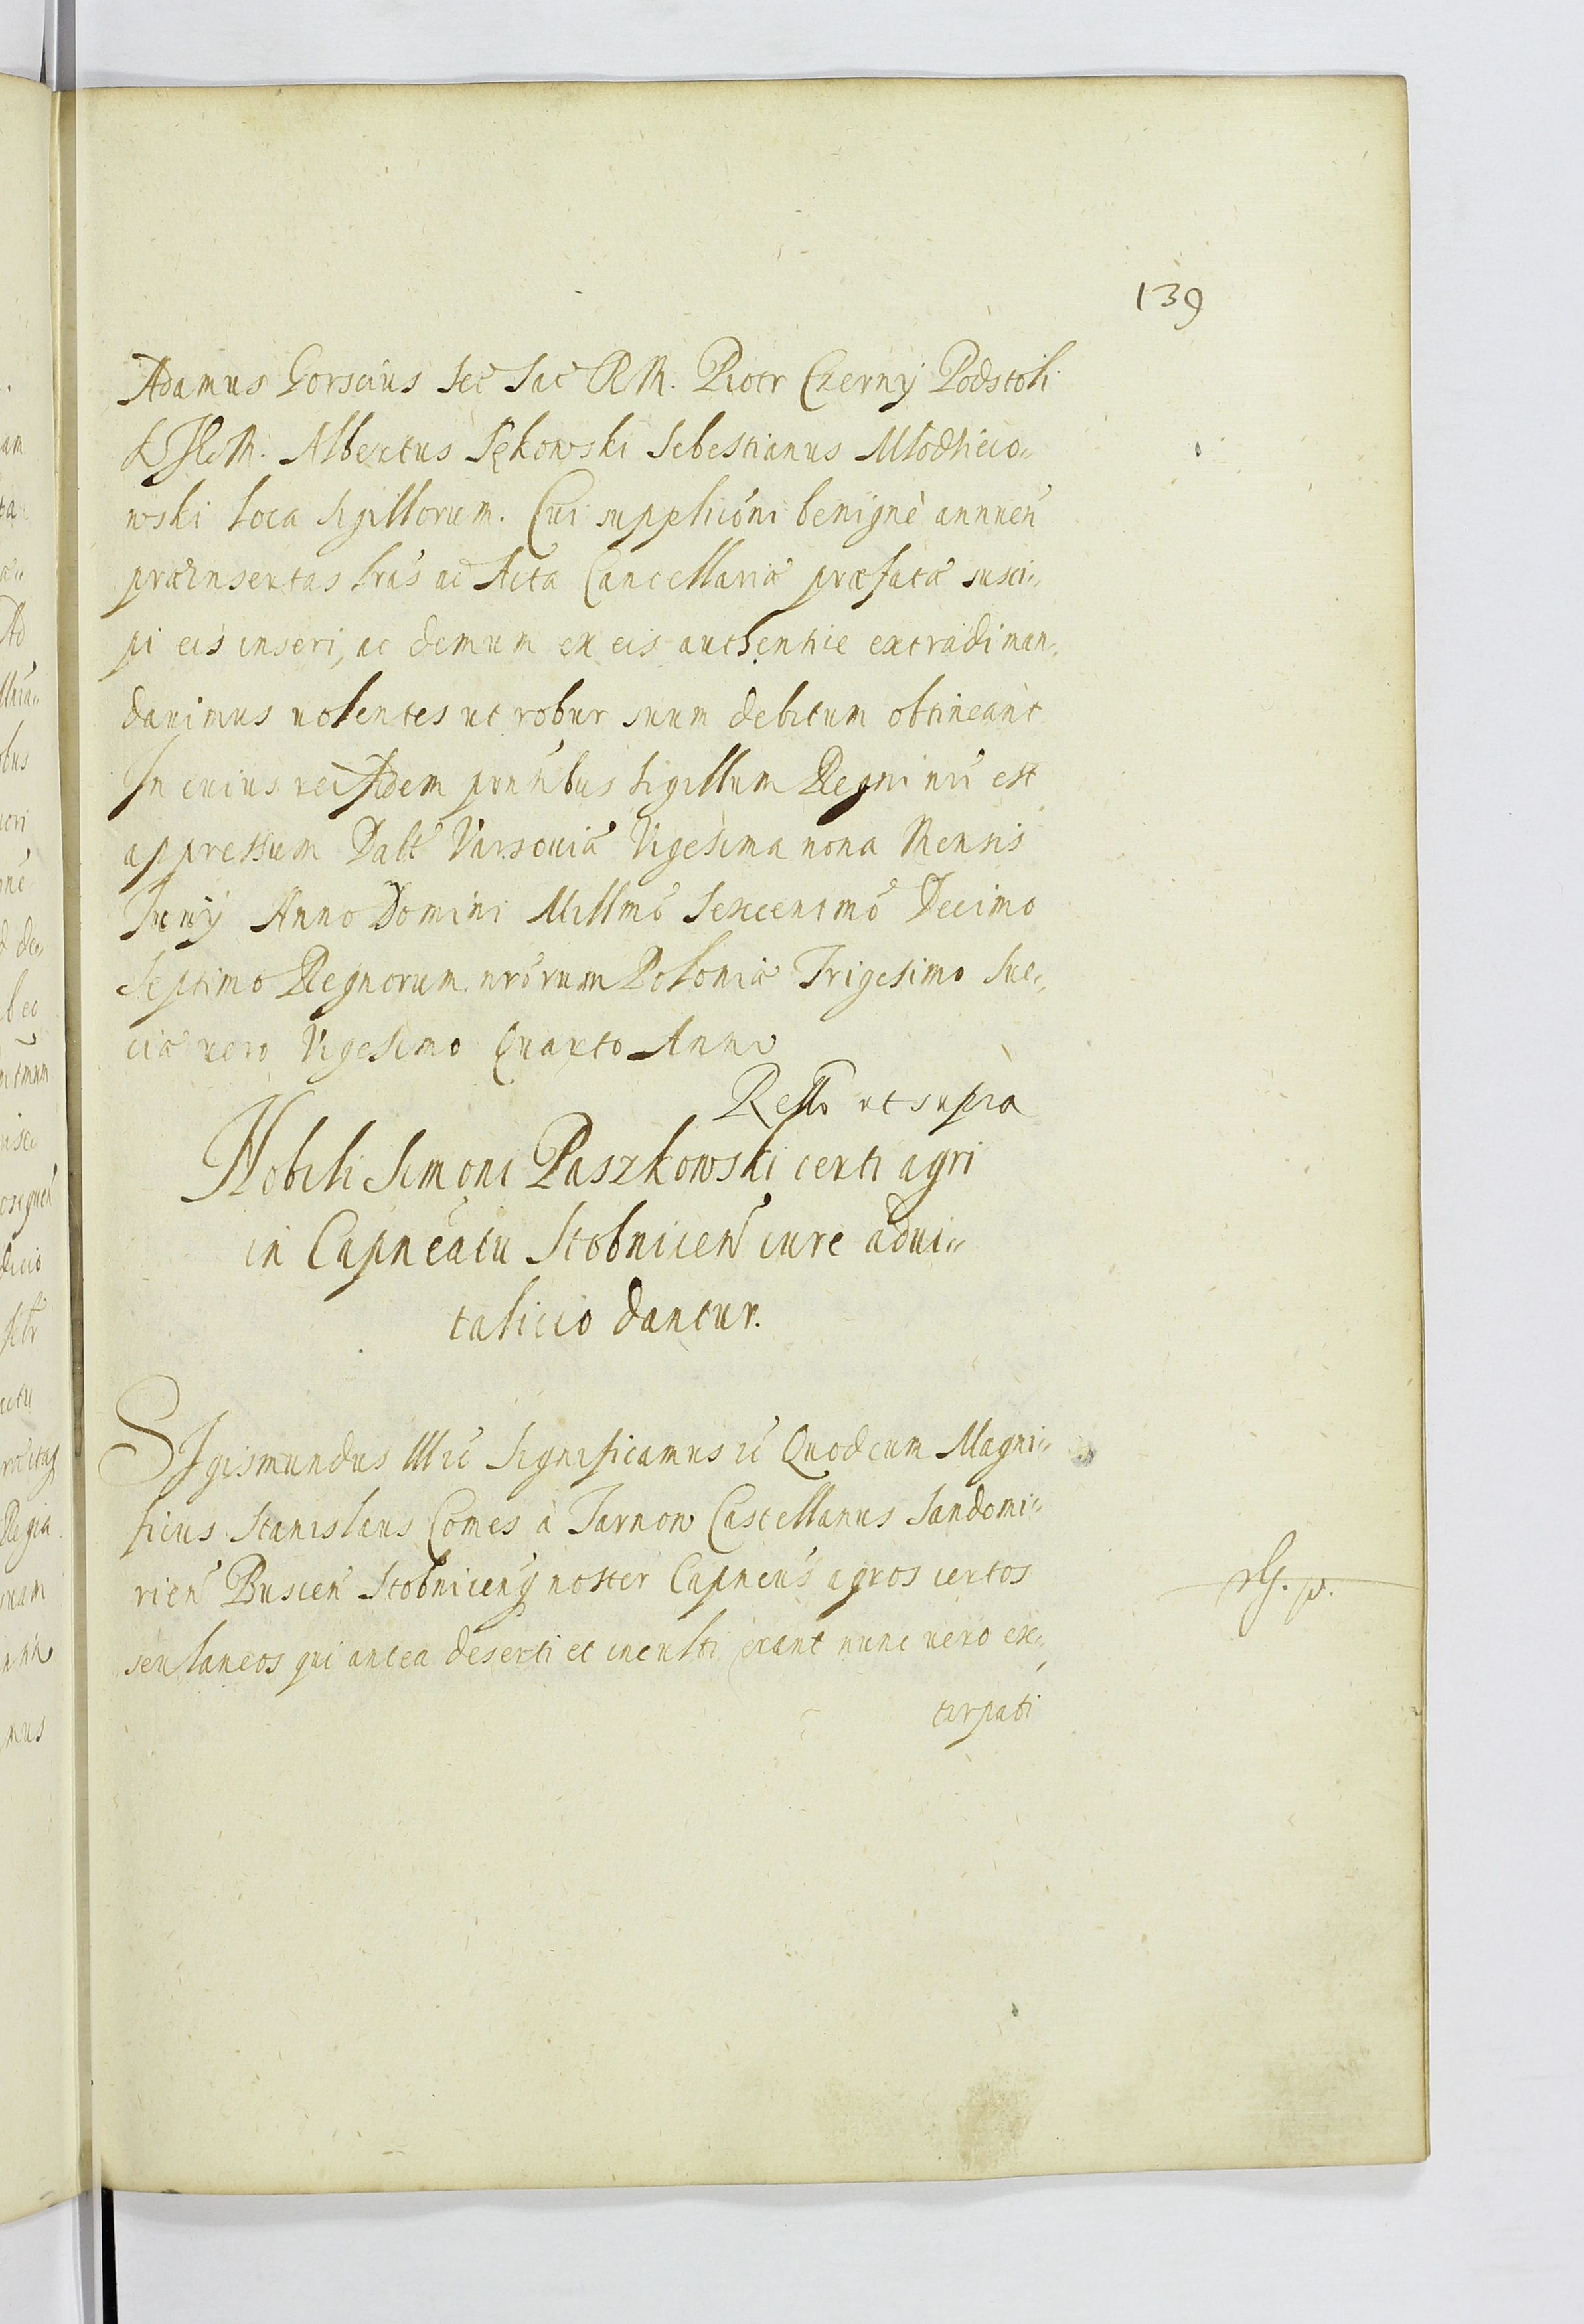 139
Adamus Gorscius Sec Sac R M. Piotr Czerny Podstoli
K J K M. Albertus Sękowski Sebestianus Młodzieio„
wski loca Sigillorum. Cui supplicōni benignè annuen̄
præinsertas lrās ac Acta Cancellariæ præfatæ susci„
pi eis inseri, ac demum ex eis authentice extradi man„
dauimus uolentes ut robur suum debitum obtineant
In cuius rei fidem pn̄tibus Sigillum Regni nr̄i est
appressum Datt Varsouiæ Vigesima nona Mensis
Iunij Anno Domini Millmō Sexcentmō Decimo
Septimo Regnorum nrōrum Poloniæ Trigesimo Sue„
ciæ uero Vigesimo Quarto Anno
Reſſō ut supra
Nobili Simoni Paszkowski certi agri
in Capneatu Stobnicen̄ iure adui„
talicio dantur.
SIgismundus IIIc̄ Significamus c̄ Quod cum Magni„
ficus Stanislaus Comes à Tarnow Castellanus Sandomi„
rien̄ Buscen̄ Stobnicenq̄ noster Capneus agros certos
seu laneos qui antea deserti et inculti erant nunc uero ex„
tirpati